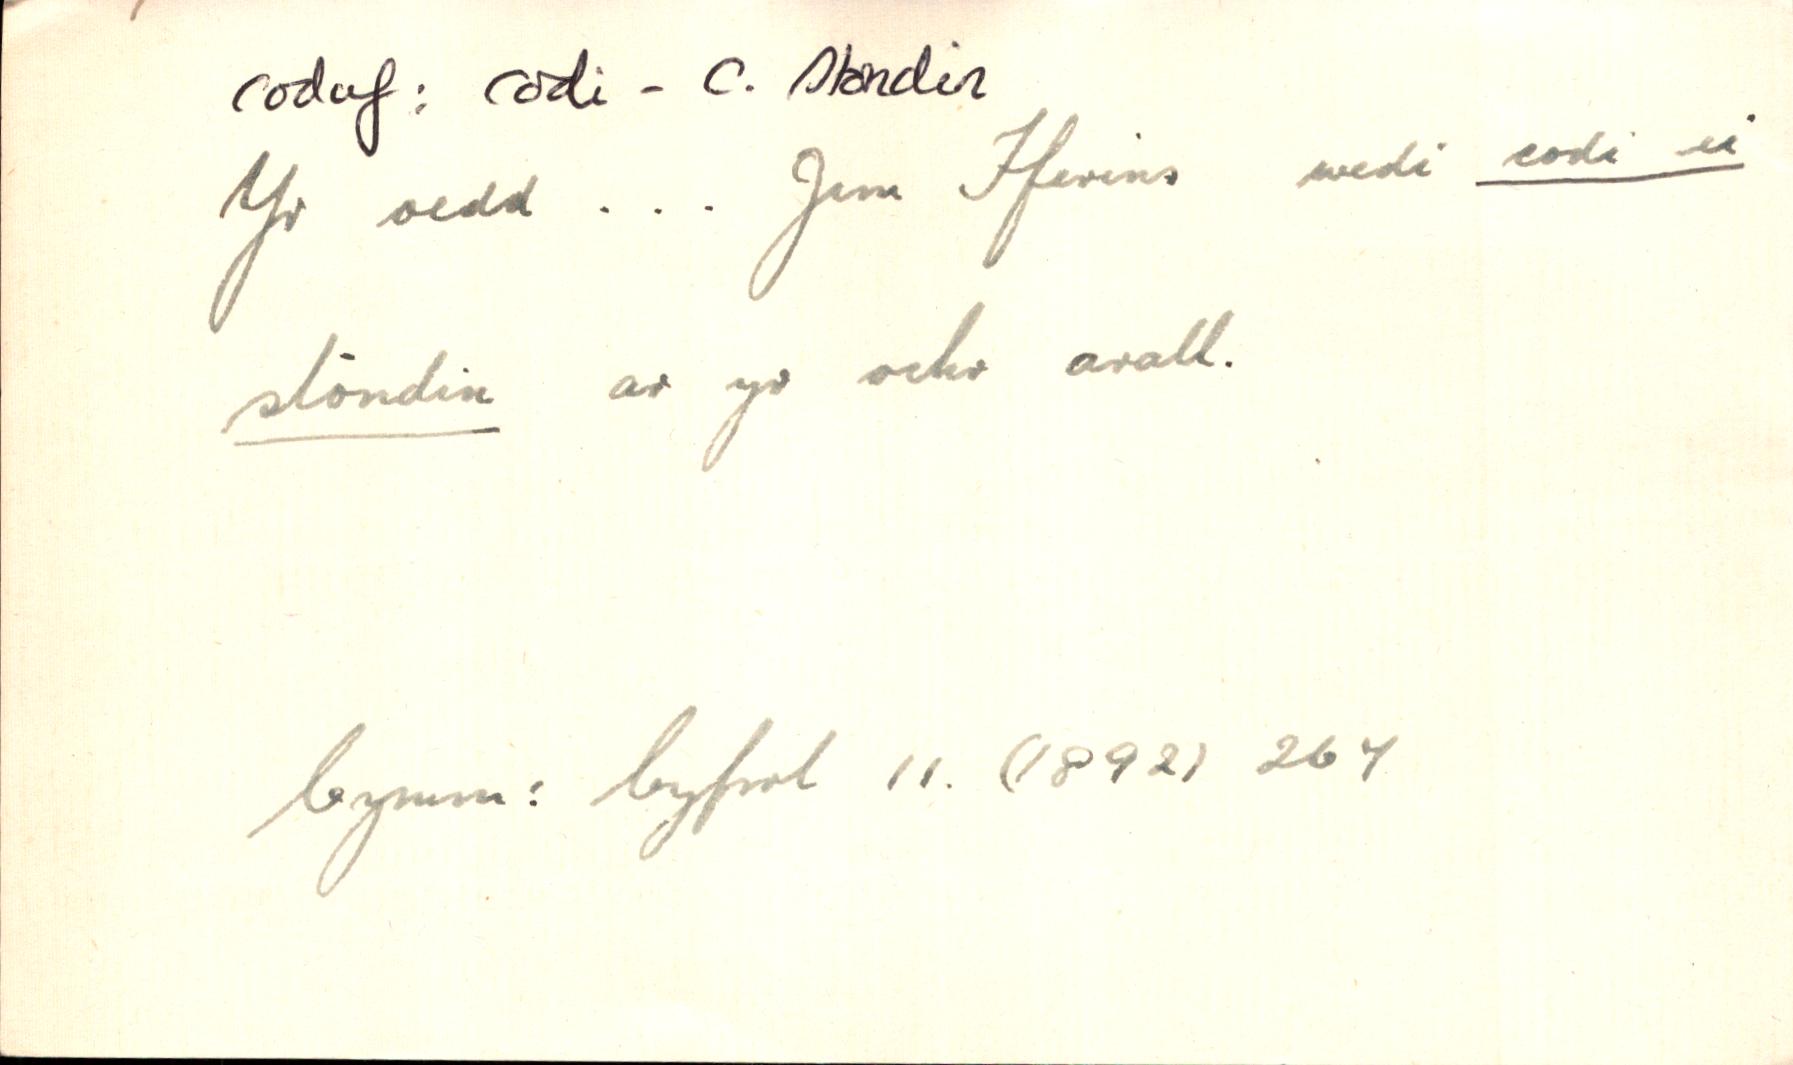 codaf: codi - c. stondin
Yr oedd ... Jim Ifferins wedi codi ei
stondin ar yr ochr arall.
Cymm: Cyfrol 11. (1892) 267